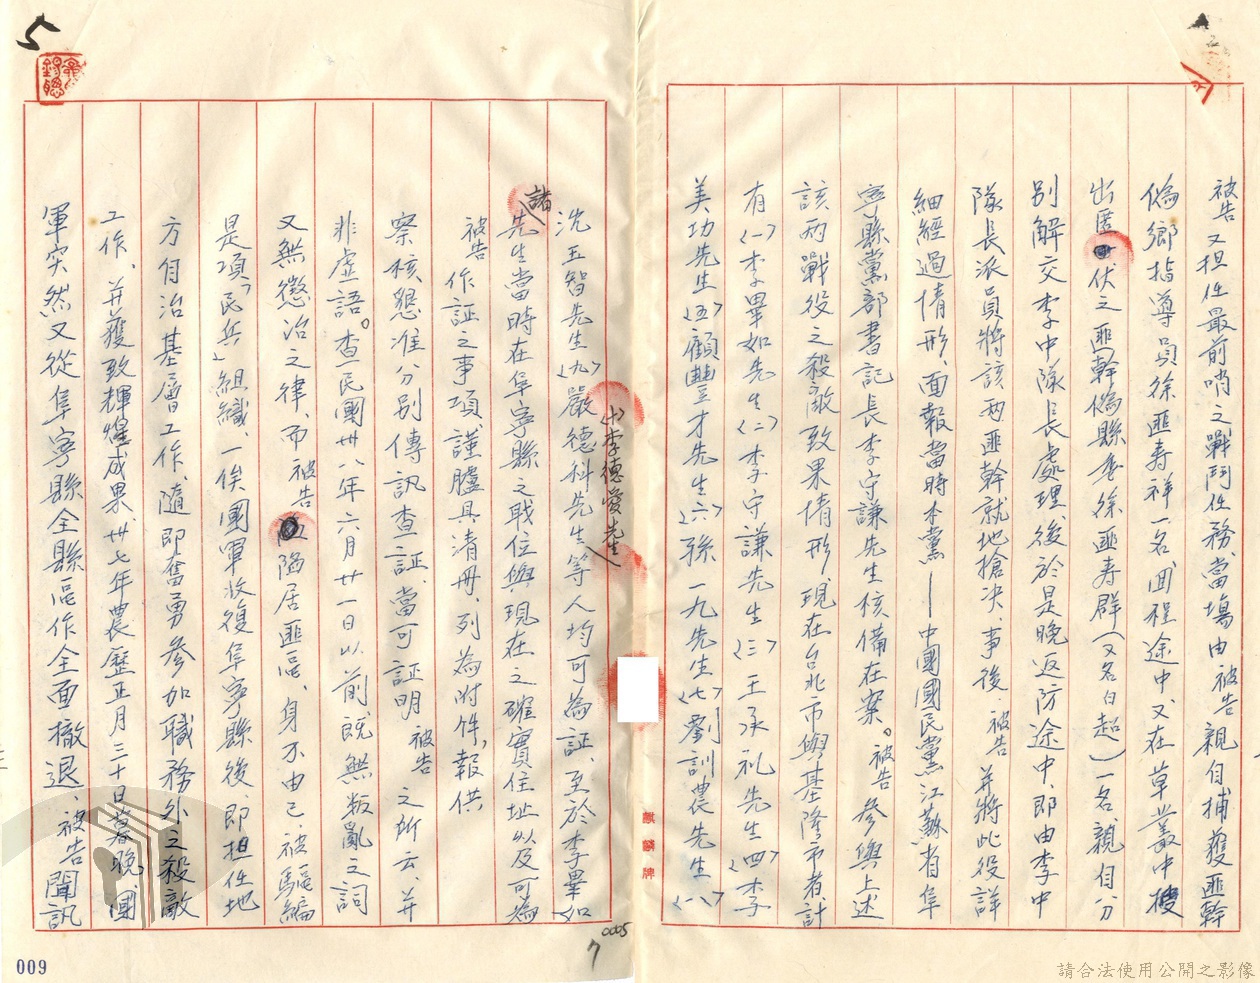 被告又担任最前哨之戰鬥任務、當場由被告親自捕獲匪幹
偽鄉指導員徐匪寿祥一名、囬程途中、又在草叢中搜
出匿伏之匪幹偽縣委徐匪寿群（又名白超）一名、親自分
别解交李中隊長處理、後於是晚返防途中、即由李中
隊長派員將該两匪幹就地搶决、事後被告並將此役詳
細經過情形、面報當時本黨——中國國民黨江蘇省阜
寧縣黨部書記長李守謙先生核備在案。被告參與上述
該两戰役之殺敵致果情形、現在台北市與基隆市者、計
有〈一〉李畢如先生〈二〉李守謙先生〈三〉王承礼先生〈四〉李
美功先生〈五〉顧豐才先生〈六〉孫一九先生〈七〉劉訓農先生〈八〉
沈玉智先生〈九〉嚴德科先生〈十〉李德愛先生等人均可為証、至於李畢如
諸先生當時在阜寧縣之戰位與現在之確實住址以及可為
被告作証之事項、謹臚具清冊、列為附件、報供
察核懇准分别傳訊查証、當可証明被告之所云、并
非虚語。查民國卅八年六月廿一日以前、既無叛亂之詞
又無懲治之律、而被告陷居匪區、身不由己、被驅編
是項「民兵」組織、一俟國軍收復阜寧縣後、即担任地
方自治基層工作、隨即奮勇參加職務外之殺敵
工作、并獲致輝煌成果、卅七年農歷正月三十日暮晚、國
軍突然又從阜寧縣全縣區作全面撤退、被告聞訊
5
009
0005
7
麒麟牌
請合法使用公開之影像